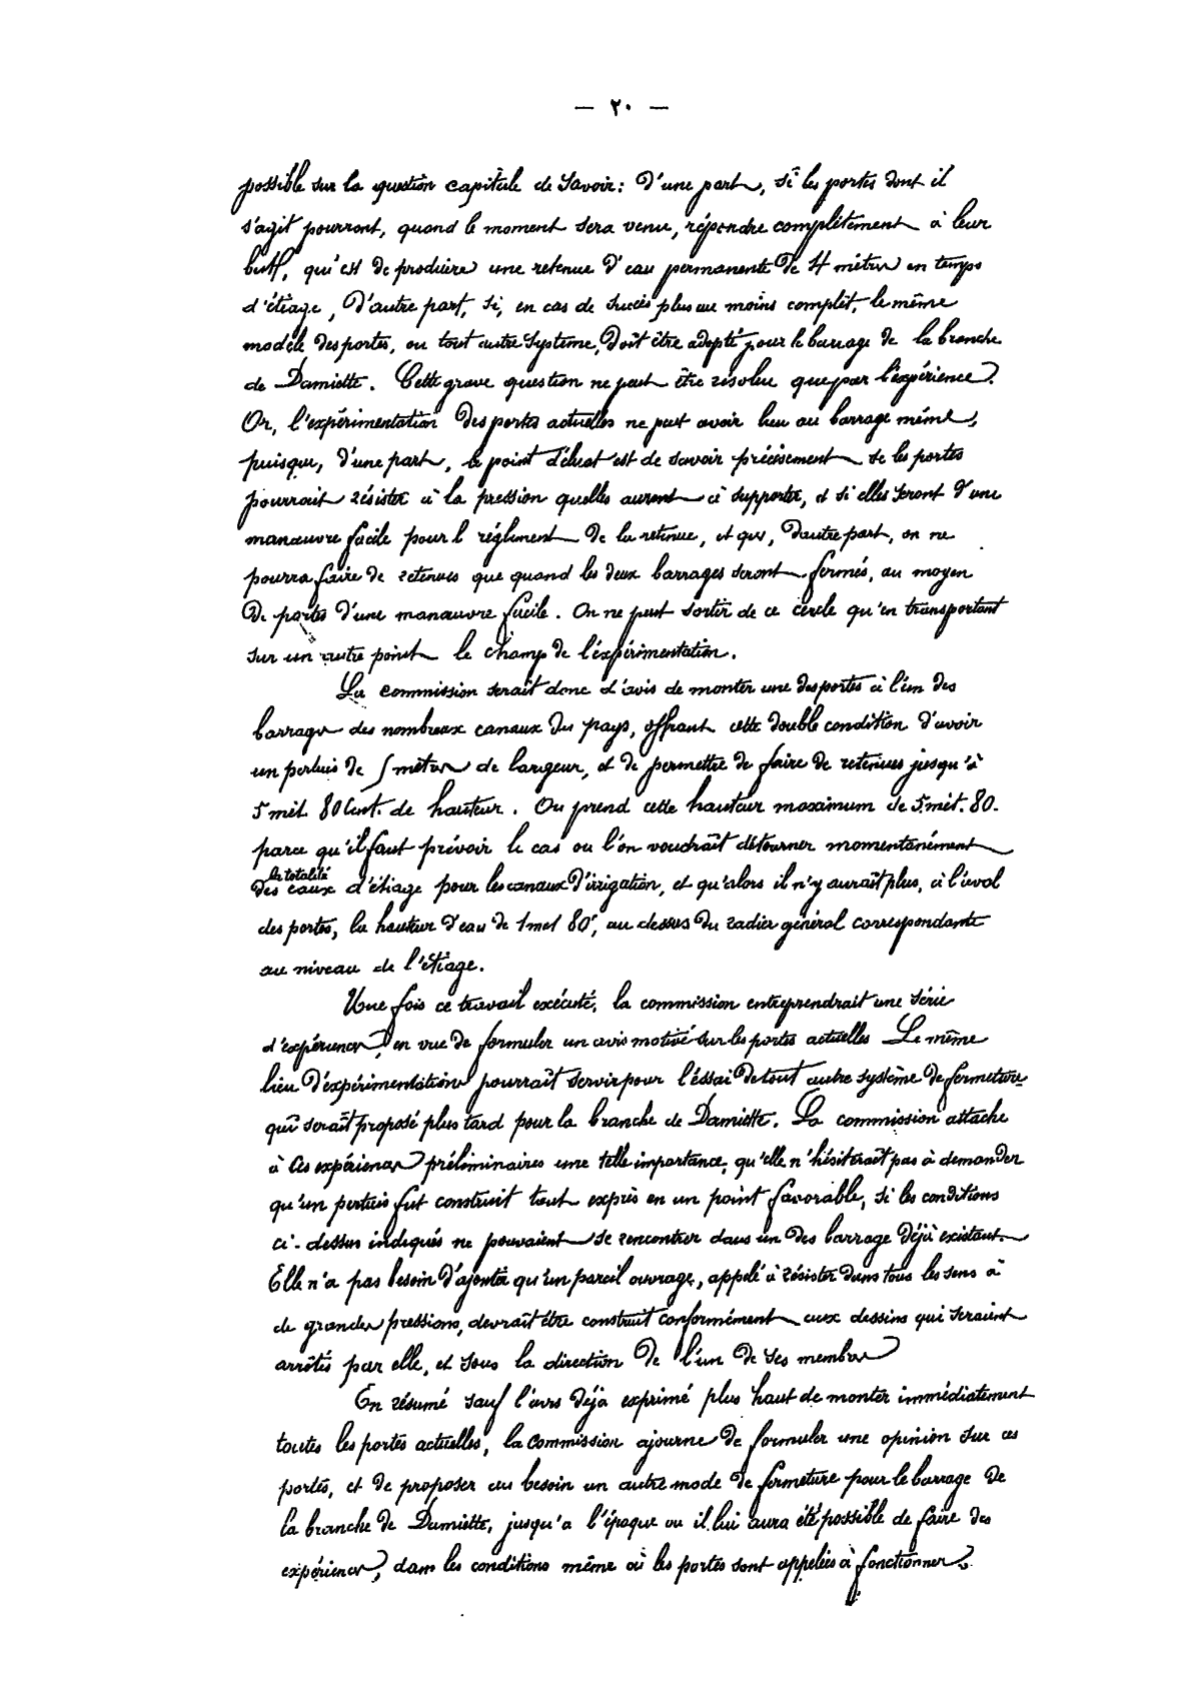 — ٢٠ —
possible sur la question capitale de savoir: d'une part, si les portes dont il
s'agit pourront, quand le moment sera venu, répondre complètement à leur
but, qui est de produire une retenue d'eau permanente de 4 mètres en temps
d'étiage, d'autre part, si, en cas de succès plus ou moins complet, le même
modèle des portes, ou tout autre système, doit être adopté pour le barrage de la branche
de Damiette. Cette grave question ne peut être résolue que par l'expérience.
Or, l'expérimentation des portes actuelles ne peut avoir lieu au barrage même,
puisque, d'une part, le point délicat est de savoir précisément si les portes
pourrait résister à la pression quelles auront à supporter, et si elles seront d'une
manœuvre facile pour l réglment de la retenue, et que, d'autre part, on ne
pourra faire de retenues que quand les deux barrages seront fermés, au moyen
de portes d'une manœuvre facile. On ne peut sortir de ce cercle qu'en transportant
sur un autre point le champ de l'éxpérimentation.
La commission serait donc d'avis de monter une des portes à l'un des
barrages des nombreux canaux du pays, offrant cette double condition d'avoir
un pertuis de 5 mètres de largeur, et de permettre de faire de retenues jusqu'à
5 mèt. 80 Cent. de hauteur. On prend cette hauteur maximum de 5. mèt. 80.
parce qu'il faut prévoir le cas ou l'on voudrait détourner momentanément
la totalité
des eaux d'étiage pour les canaux d'irrigation, et qu'alors il n'y aurait plus, à l'aval
des portes, la hauteur d'eau de 1 met 80, au dessus du radier général correspondante
au niveau de l'étiage.
Une fois ce travail exécuté, la commission entreprendrait une série
d'expériences, en vue de formuler un avis motivé sur les portes actuelles Le même
lieu d'expérimentations pourrait servir pour l'éssai de tout autre système de fermeture
qui serait proposé plus tard pour la branche de Damiette. La commission attache
à ces expériences préliminaires une telle importance, qu'elle n'hésiterait pas à demander
qu'un pertuis fut construit tout exprès en un point favorable, si les conditions
ci-dessus indiqués ne pouvaient se rencontrer dans un des barrage déjà existant.
Elle n'a pas besoin d'ajouter qu'un pareil ouvrage, appelé à résister dans tous les sens à
de grandes pressions, devrait être construit conformément aux dessins qui seraient
arrêtés par elle, et sous la direction de l'un de ses membres
En résumé sauf l'avis déjà exprimé plus haut de monter immédiatement
toutes les portes actuelles, la Commission ajourne de formuler une opinion sur ces
portes, et de proposer au besoin un autre mode de fermeture pour le barrage de
la branche de Damiette, jusqu'a l'époque ou il lui aura été possible de faire des
expériences, dans les conditions même où les portes sont appelées à fonctionner.